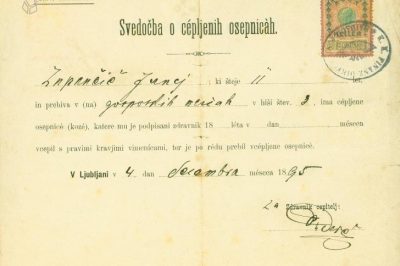 Svedočba o cépljenih osepnicàh.
Zupančič Janez ; ki šteje 11 let,
in prebiva v (na) gosposkih ulicah v hiši štev. 3, ima cépljene
osepnice (kozé), katere mu je podpisani zdravnik 18 léta v dan méseca
vcepil s pravimi kravjimi vimenicami, ter je po rédu prebil vcépljene osepnice.
V Ljubljani v 4. dan decembra méseca 1895
Za Zdravnik cepitelj: